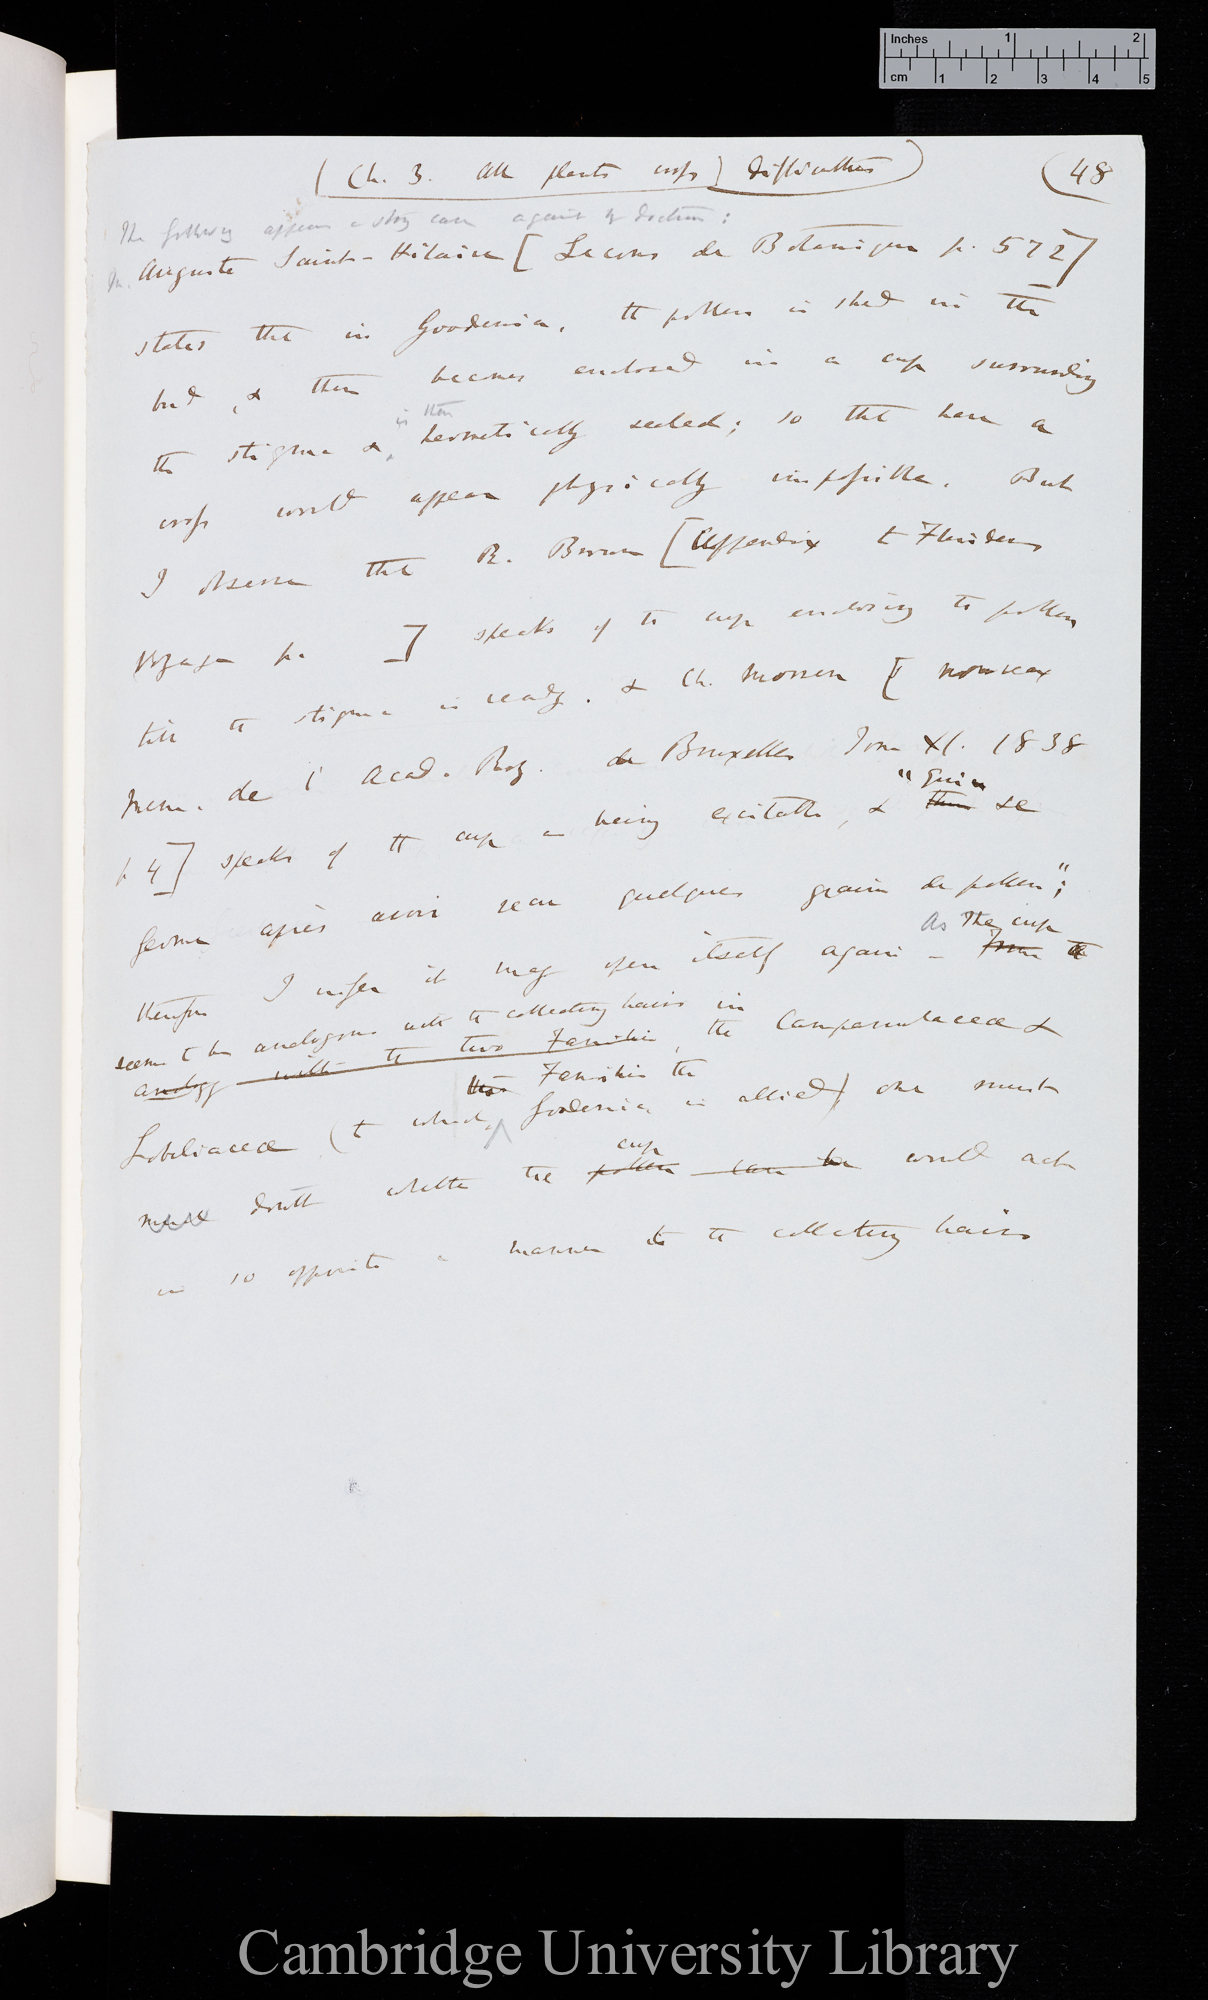 Inches 1 2
cm 1 2 3 4 5
(Ch. 3. All plants cross) Difficulties)
(48
The following appears a strong case against my doctrine:
M. Auguste Saint-Hilaire [Lecons de Botanique p. 572]
states that in Goodenia, the pollen is shed in the
bud, & then becomes enclosed in a cup surrounding
is then
the stigma & hermetically sealed; so that here a
cross would appear physically impossible. But
I observe that R. Brown [Appendix to Flinders
Voyage p. ] speaks of the cup enclosing the pollen
till the stigma is ready. & Ch. Morren [nouveax
Mem. de l'Acad. Roy. de Bruxelles Tom XI. 1838
"Quin
p 4] speaks of the cup as being excitable, & then se
ferme après avoir recu quelques grains de pollen";
As the cup
therefore I infer it may open itself again – From the
seems to be analogous with the collecting hairs in
analogy with the two Families, the Campanulaceæ &
this Families the
Lobeliaceæ (to which Goodenia is allied) one must
cup
doubt whether the pollen can be would act
in so opposite a manner to the collecting hairs
Cambridge University Library